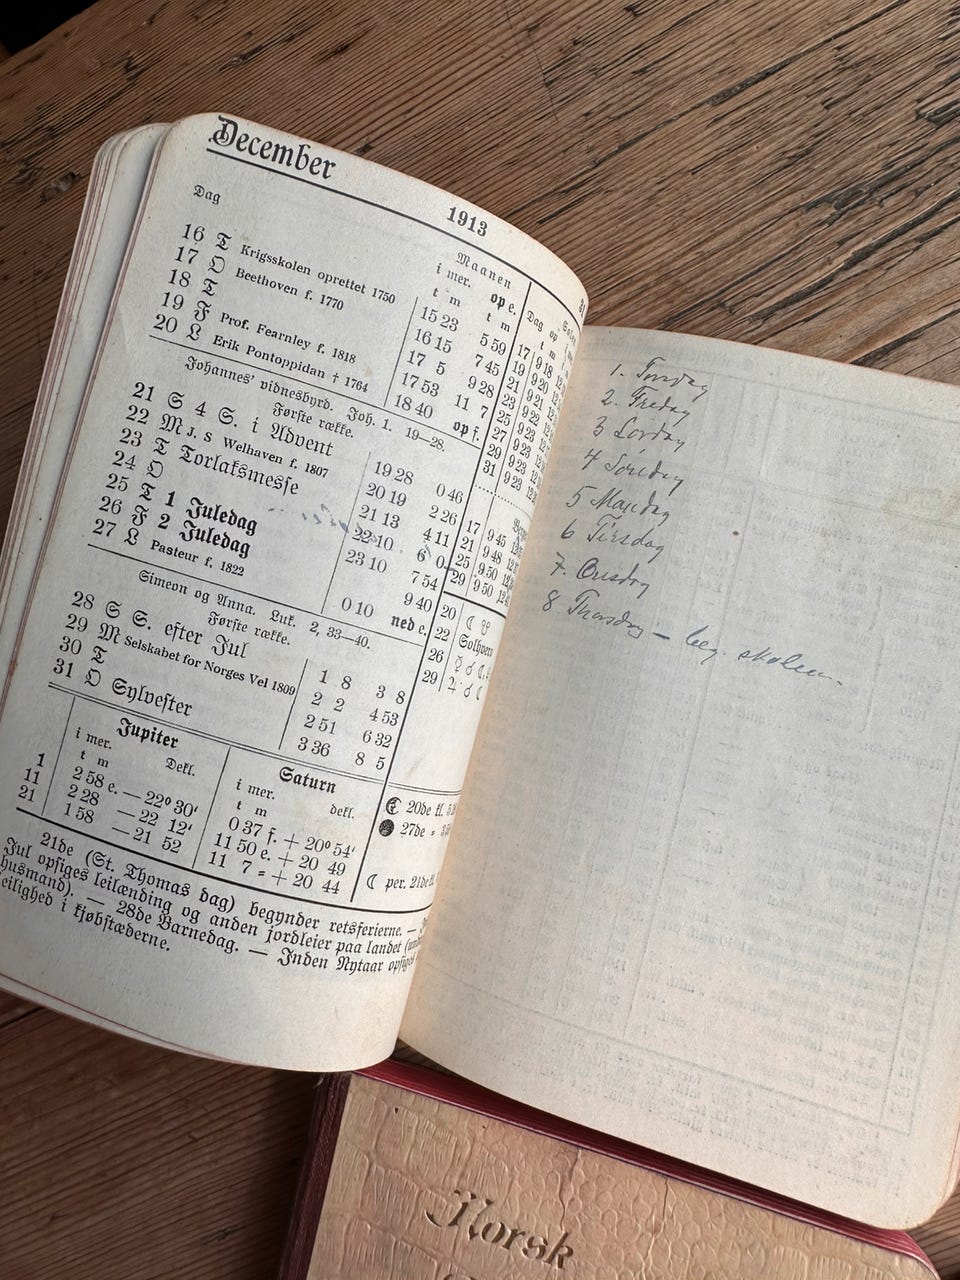 December
1913
Dag
Maanen
i mer. op e.
t m t m
16 T Krigsskolen oprettet 1750 15 23 5 59
17 O Beethoven f. 1770 16 15 7 45
18 T 17 5 9 28
19 F Prof. Fearnley f. 1818 17 53 11 7
20 L Erik Pontoppidan † 1764 18 40 op f.
Johannes' vidnesbyrd. Joh. 1. 19—28.
Første række.
21 S 4 S. i Advent 19 28 0 46
22 M J. S Welhaven f. 1807 20 19 2 26
23 T Torlaksmesse 21 13 4 11
24 O 22 10 6 0
25 T 1 Juledag 23 10 7 54
26 F 2 Juledag 9 40
27 L Pasteur f. 1822 0 10 ned e.
Simeon og Anna. Luk. 2, 33—40.
Første række.
28 S S. efter Jul 1 8 3 8
29 M Selskabet for Norges Vel 1809 2 2 4 53
30 T 2 51 6 32
31 O Sylvester 3 36 8 5
Jupiter
i mer. Dekl.
t m
1 2 58 e. — 22° 30'
11 2 28 — 22 12'
21 1 58 — 21 52
Saturn
i mer. dekl.
t m
0 37 f. + 20° 54'
11 50 e. + 20 49
11 7 = + 20 44
Dag op
t m
17 9 18
19 9 20
21 9 21
23 9 22
25 9 23
27 9 23
29 9 23
31 9 23
17 9 45
21 9 48
25 9 50
29 9 50
20 ☾ ☋
22 Solhverv
26 ☿ ☌ ☾
29 ♃ ☌ ☾
☾ 20de kl.
● 27de =
☾ per. 21de kl.
21de (St. Thomas dag) begynder retsferierne. —
Jul opsiges leilænding og anden jordleier paa landet
husmand). — 28de Barnedag. — Inden Nytaar opsiges
eilighed i kjøbstæderne.
1. Torsdag
2. Fredag
3 Lørdag
4 Søndag
5 Mandag
6 Tirsdag
7. Onsdag
8 Thorsdag — beg. skolen.
Norsk